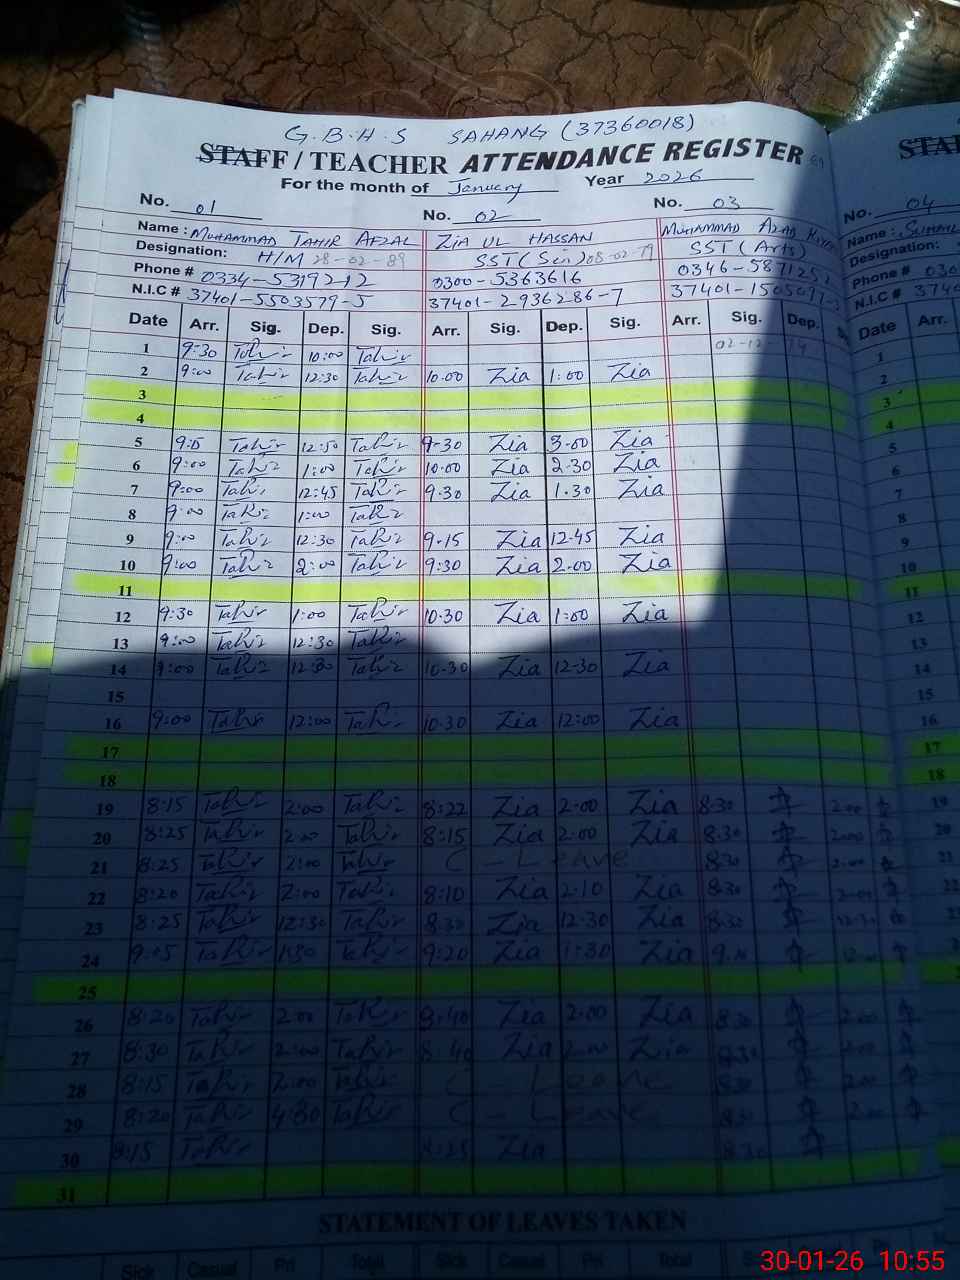 G.B.H.S SAHANG (37360018)
STAFF / TEACHER ATTENDANCE REGISTER
For the month of January Year 2026
No. 01 No. 02 No. 03 No. 04
Name : MUHAMMAD TAHIR AFZAL ZIA UL HASSAN MUHAMMAD AZAD Name :
Designation: H/M 28-02-89 SST (Sci) 08-02-79 SST (Arts) Designation:
Phone # 0334-5319212 0300-5363616 0346-5871252 Phone #
N.I.C # 37401-5503579-5 37401-2936286-7 37401- N.I.C #
Date Arr. Sig. Dep. Sig. Arr. Sig. Dep. Sig. Arr. Sig. Dep. Date Arr.
1 9:30 Tahir 10:00 Tahir 1
2 9:00 Tahir 12:30 Tahir 10.00 Zia 1:00 Zia 2
3 3
4 4
5 Tahir 12:50 Tahir 9-30 Zia 3-00 Zia 5
6 9:00 Tahir 1:00 Tahir 10.00 Zia 2.30 Zia 6
7 9:00 Tahir 12:45 Tahir 9.30 Zia 1.30 Zia 7
8 9:00 Tahir 1:00 Tahir 8
9 9:00 Tahir 12:30 Tahir 9-15 Zia 12-45 Zia 9
10 9:00 Tahir 2:00 Tahir 9:30 Zia 2.00 Zia 10
11 11
12 9:30 Tahir 1:00 Tahir 10.30 Zia 1:00 Zia 12
13 9:00 Tahir 12:30 Tahir 13
14 9:00 Tahir 12:30 Tahir 10-30 Zia 12-30 Zia 14
15 15
16 9:00 Tahir 12:00 Tahir 10.30 Zia 12:00 Zia 16
17 17
18 18
19 8:15 Tahir 2:00 Tahir 8:22 Zia 2-00 Zia 8-30 2.00 19
20 8:25 Tahir 2:00 Tahir 8:15 Zia 2:00 Zia 8.30 2.00 20
21 8:25 Tahir 2:00 Tahir C - Leave 8.30 2.00 21
22 8:20 Tahir 2:00 Tahir 8:10 Zia 2:10 Zia 8.30 2.00 22
23 8:25 Tahir 12:30 Tahir 8:30 Zia 12.30 Zia 8.30 12-30
24 9:05 Tahir 1:30 Tahir 9:20 Zia 1:30 Zia
25
26 8:20 Tahir 2:00 Tahir 8-40 Zia 2:00 Zia 8.30 2.00
27 8:30 Tahir 2:00 Tahir 8.40 Zia 2.00 Zia 8.30 2.00
28 8:15 Tahir 2:00 Tahir C - Leave 8.30 2.00
29 8:20 Tahir 4:30 Tahir C - Leave 8.30 2.00
30 8:15 Tahir 8:25 Zia 8.30
31
STATEMENT OF LEAVES TAKEN
Sick Casual Pri Total Sick Casual Pri Total
30-01-26 10:55